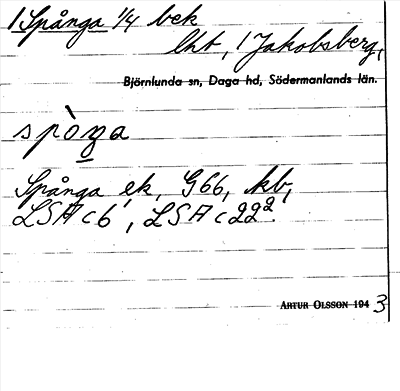 1 Spånga 1/4 bek
lht, 1 Jakobsberg,
Björnlunda sn, Daga hd, Södermanlands län.
spòŋa
Spånga ek, G66, kb,
LSA c6, LSA c22².
ARTUR OLSSON 1943